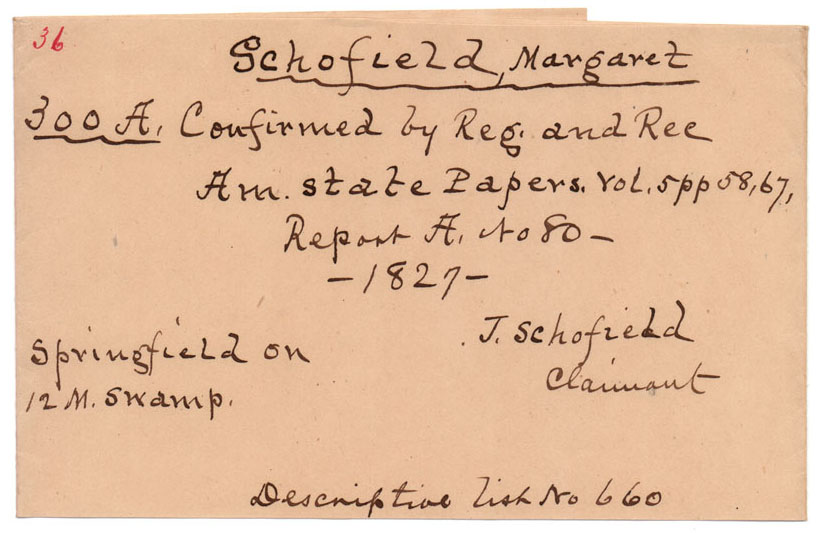 36
Schofield, Margaret
300 A. Confirmed by Reg. and Rec
Am. state Papers. Vol. 5 pp 58, 67,
Report A. No 80 –
– 1827 –
J. Schofield
Claimant
Springfield on
12 M. Swamp.
Descriptive list No 660